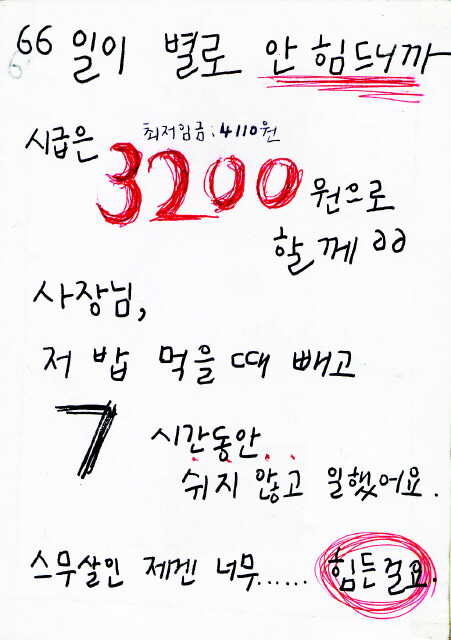 66 일이 별로 안 힘드니까
시급은
최저임금 : 4110원
3200 원으로
할께 ээ
사장님,
저 밥 먹을 때 빼고
7 시간동안
쉬지 않고 일했어요.
스무살인 제겐 너무...... 힘든걸요.